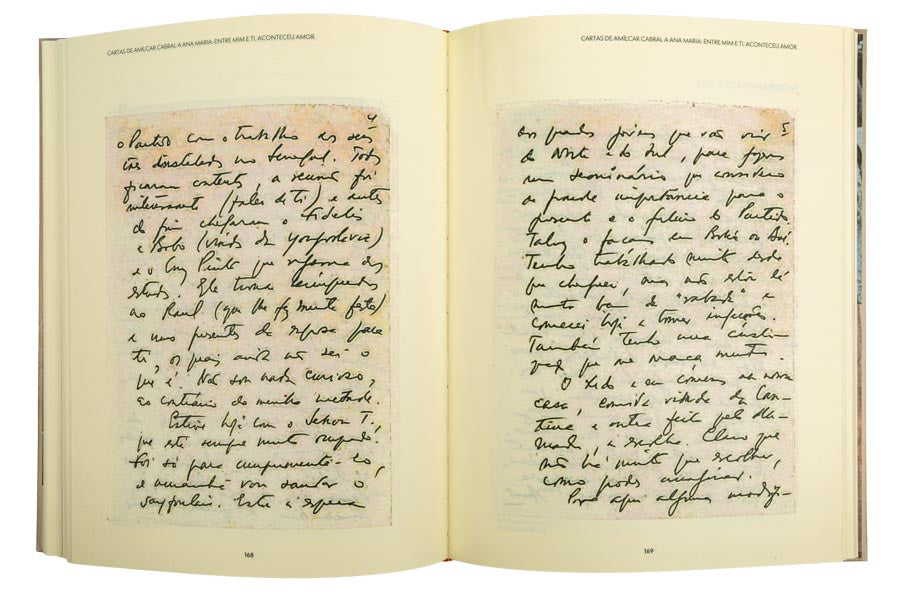 CARTAS DE AMÍLCAR CABRAL A ANA MARIA: ENTRE MIM E TI, ACONTECEU AMOR
4
o Partido com o trabalho aos seus
três instalados no Senegal. Todos
ficaram contentes, a reunião foi
interessante (falei de ti) e antes
do fim chegaram o Fidelis
e Bobo (vindos da Yougoslavia)
e o Cruz Pinto que regressa dos
estudos. Ele trouxe brinquedos
ao Raul (que lhe fez muita festa)
e uns presentes da esposa para
ti, os quais ainda não sei o
que é. Não sou nada curioso,
ao contrário da minha metade.
Estive hoje com o Sekou T.,
que está sempre muito ocupado.
Foi só para cumprimentá-lo,
e amanhã vou saudar o
Sayfoulaye. Está à espera
168
CARTAS DE AMÍLCAR CABRAL A ANA MARIA: ENTRE MIM E TI, ACONTECEU AMOR
5
dos quadros jovens que vão vir
do Norte e do Sul, para fazermos
um seminário que considero
de grande importância para o
presente e o futuro do Partido.
Talvez o façamos em Boké ou
Tenho trabalhado muito desde
que cheguei, mas não estou lá
muito bem de "saúde" e
comecei hoje a tomar injecções.
Também tenho uma
que me maça muito.
O e eu comemos na nossa
casa, comida vinda da Can-
tina e outra feita pelo Ma-
madu, à escolha. Claro que
não há muito que escolher,
como podes imaginar.
Por aqui algumas modifi-
169